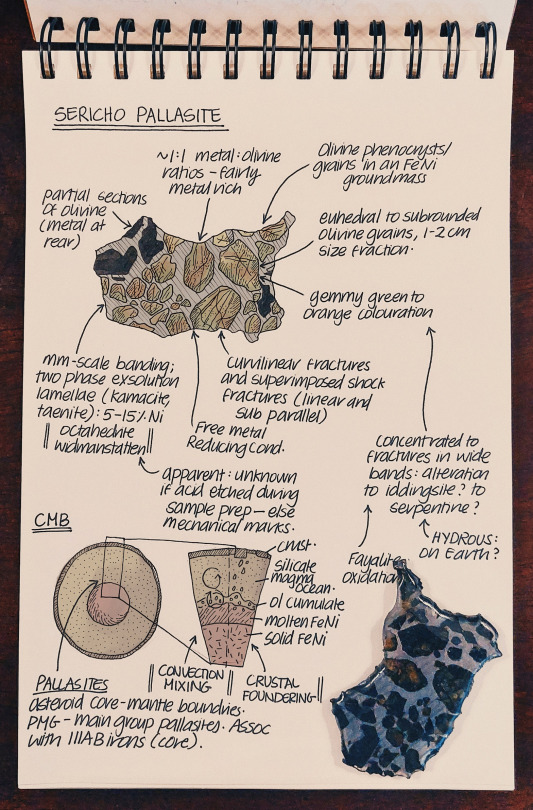 SERICHO PALLASITE
~1:1 metal:olivine
ratios - fairly
metal rich
Olivine phenocrysts/
grains in an FeNi
groundmass
partial sections
of olivine
(metal at
rear)
euhedral to subrounded
olivine grains, 1-2cm
size fraction.
gemmy green to
orange colouration
mm-scale banding;
two phase exsolution
lamellae (kamacite,
taenite): 5-15% Ni
octahedrite
widmanstatten
curvilinear fractures
and superimposed shock
fractures (linear and
sub parallel)
Free metal
Reducing cond.
apparent: unknown
if acid etched during
sample prep - else
mechanical marks.
concentrated to
fractures in wide
bands: alteration
to iddingsite? to
serpentine?
HYDROUS:
on Earth?
Fayalite
oxidation
CMB
crust.
silicate
magma
ocean.
ol cumulate
molten FeNi
solid FeNi
CONVECTION
MIXING
CRUSTAL
FOUNDERING
PALLASITES
asteroid core-mantle boundries.
PMG - main group pallasites. Assoc
with IIIAB irons (core).